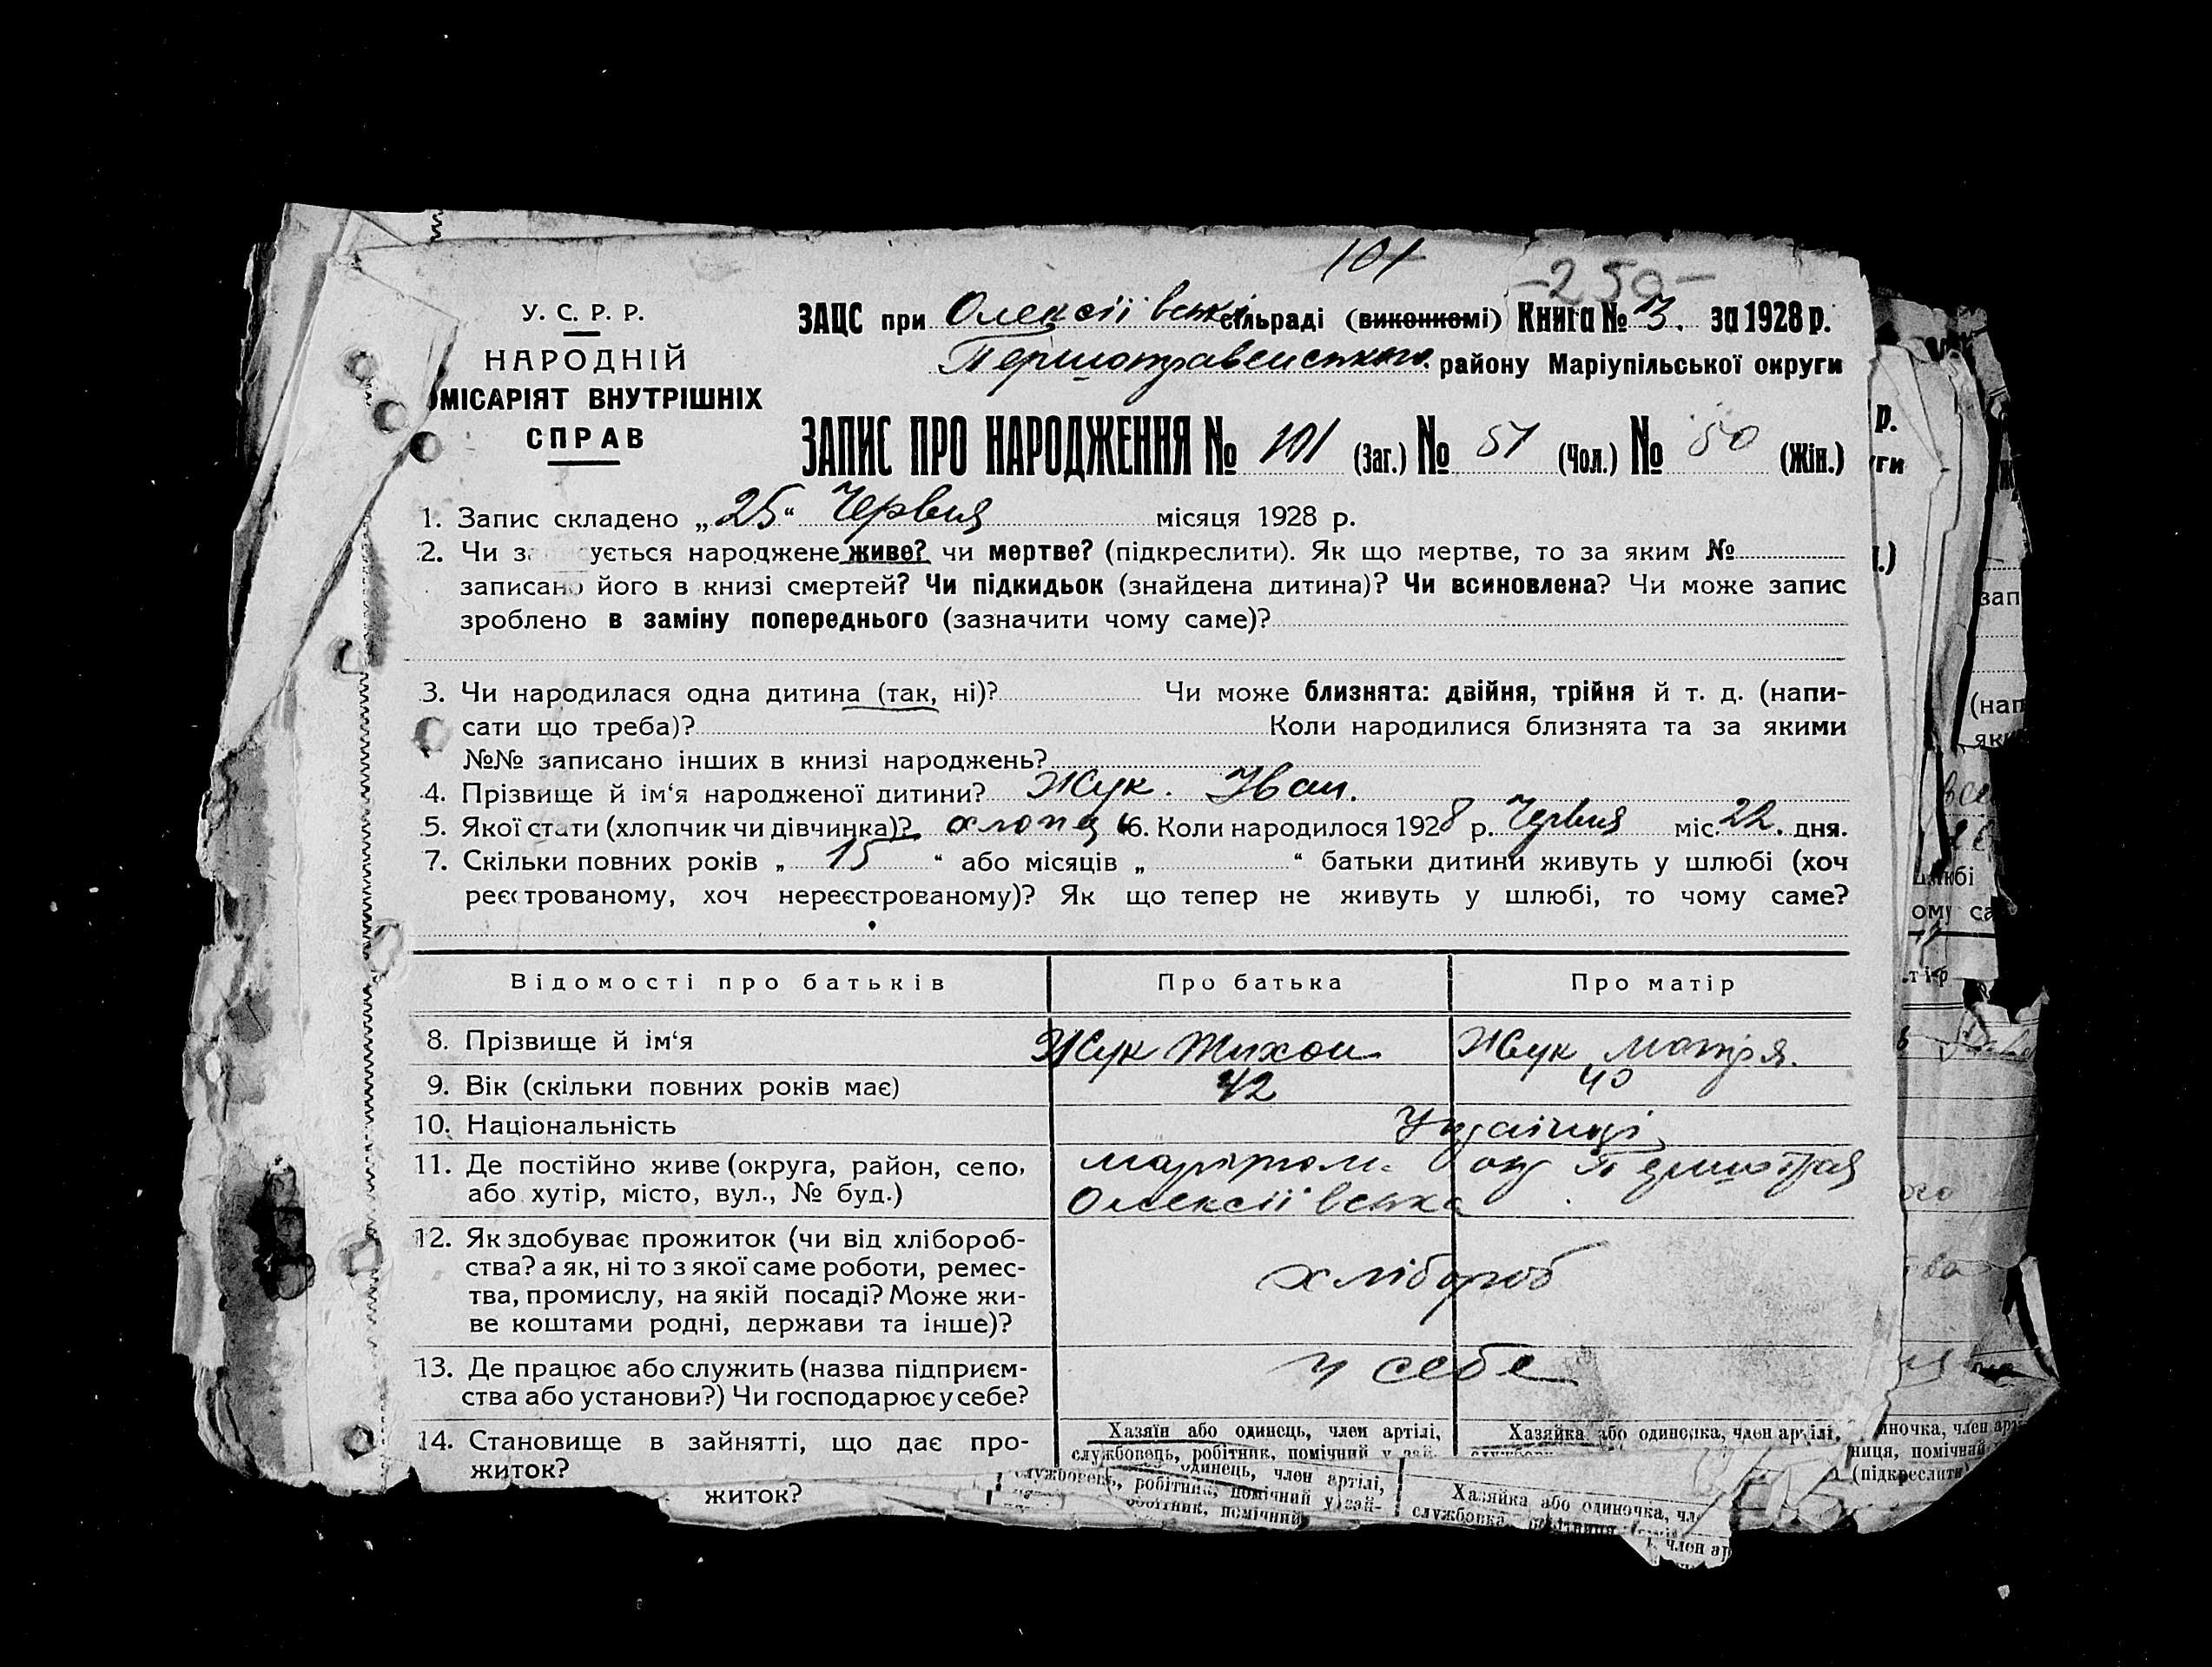 101
-250-
У. С. Р. Р.
НАРОДНІЙ
МІСАРІЯТ ВНУТРІШНІХ
СПРАВ
ЗАЦС при Олексіївські сільраді (виконкомі) Книга № 3. за 1928 р.
Першотравенського району Маріупільської округи
ЗАПИС ПРО НАРОДЖЕННЯ № 101 (Заг.) № 51 (Чол.) № 50 (Жін.)
1. Запис складено „25“ Червня місяця 1928 р.
2. Чи з ується народжене живе? чи мертве? (підкреслити). Як що мертве, то за яким №
записано його в книзі смертей? Чи підкидьок (знайдена дитина)? Чи всиновлена? Чи може запис
зроблено в заміну попереднього (зазначити чому саме)?
3. Чи народилася одна дитина (так, ні)? Чи може близнята: двійня, трійня й т. д. (напи-
сати що треба)? Коли народилися близнята та за якими
№№ записано інших в книзі народжень?
4. Прізвище й ім‘я народженої дитини? Жук. Іван.
5. Якої статі (хлопчик чи дівчинка)? хлопец 6. Коли народилося 1928 р. Червня міс. 22. дня.
7. Скільки повних років „ 15 “ або місяців „ “ батьки дитини живуть у шлюбі (хоч
реєстрованому, хоч нереєстрованому)? Як що тепер не живуть у шлюбі, то чому саме?
Відомості про батьків Про батька Про матір
8. Прізвище й ім‘я Жук Тихон Жук Мотря.
9. Вік (скільки повних років має) 42 40
10. Національність Українці
11. Де постійно живе (округа, район, село, Маріюпол. окр Першотрав
або хутір, місто, вул., № буд.) Олексіївська
12. Як здобуває прожиток (чи від хлібороб-
ства? а як, ні то з якої саме роботи, ремес-
тва, промислу, на якій посаді? Може жи-
ве коштами родні, держави та інше)? хлібороб
13. Де працює або служить (назва підприєм-
ства або установи?) Чи господарює у себе? у себе
14. Становище в зайнятті, що дає про-
житок?
Хазяїн або одинець, член артілі,
службовець, робітник, помічний у зай-
Хазяйка або одиночка, член артілі,
житок?
одинець, член артілі,
службовець, робітник, помічний у зай-
робітник, помічний
Хазяйка або одиночка, чл
службовка,